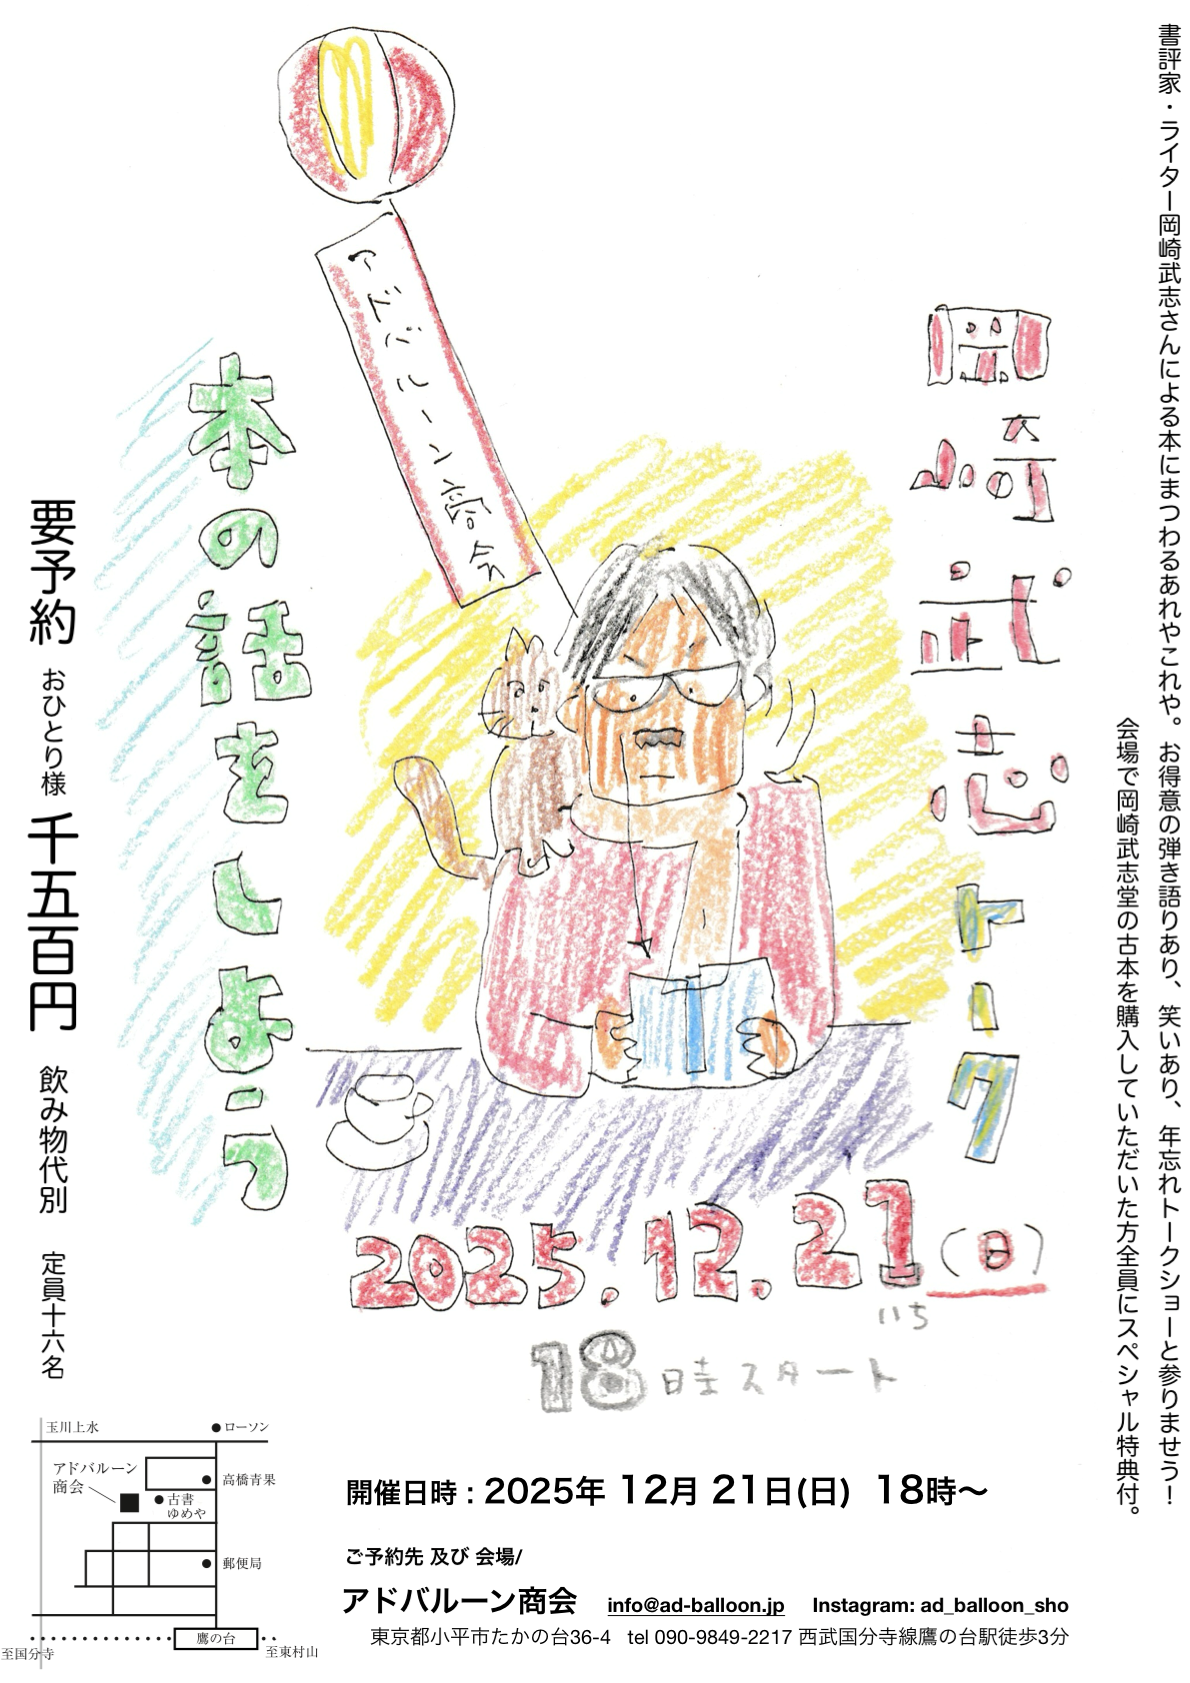 書評家・ライター岡崎武志さんによる本にまつわるあれやこれや。お得意の弾き語りあり、笑いあり、年忘れトークショーと参りませう！
会場で岡崎武志堂の古本を購入していただいた方全員にスペシャル特典付。
岡崎武志トーク
アドバルーン商会
本の話をしよう
要予約 おひとり様 千五百円 飲み物代別 定員十六名
2025.12.21(日)
いち
18時スタート
玉川上水
ローソン
アドバルーン
商会
高橋青果
古書
ゆめや
郵便局
鷹の台
至国分寺
至東村山
開催日時 : 2025年 12月 21日(日) 18時〜
ご予約先 及び 会場/
アドバルーン商会 info@ad-balloon.jp Instagram: ad_balloon_sho
東京都小平市たかの台36-4 tel 090-9849-2217 西武国分寺線鷹の台駅徒歩3分